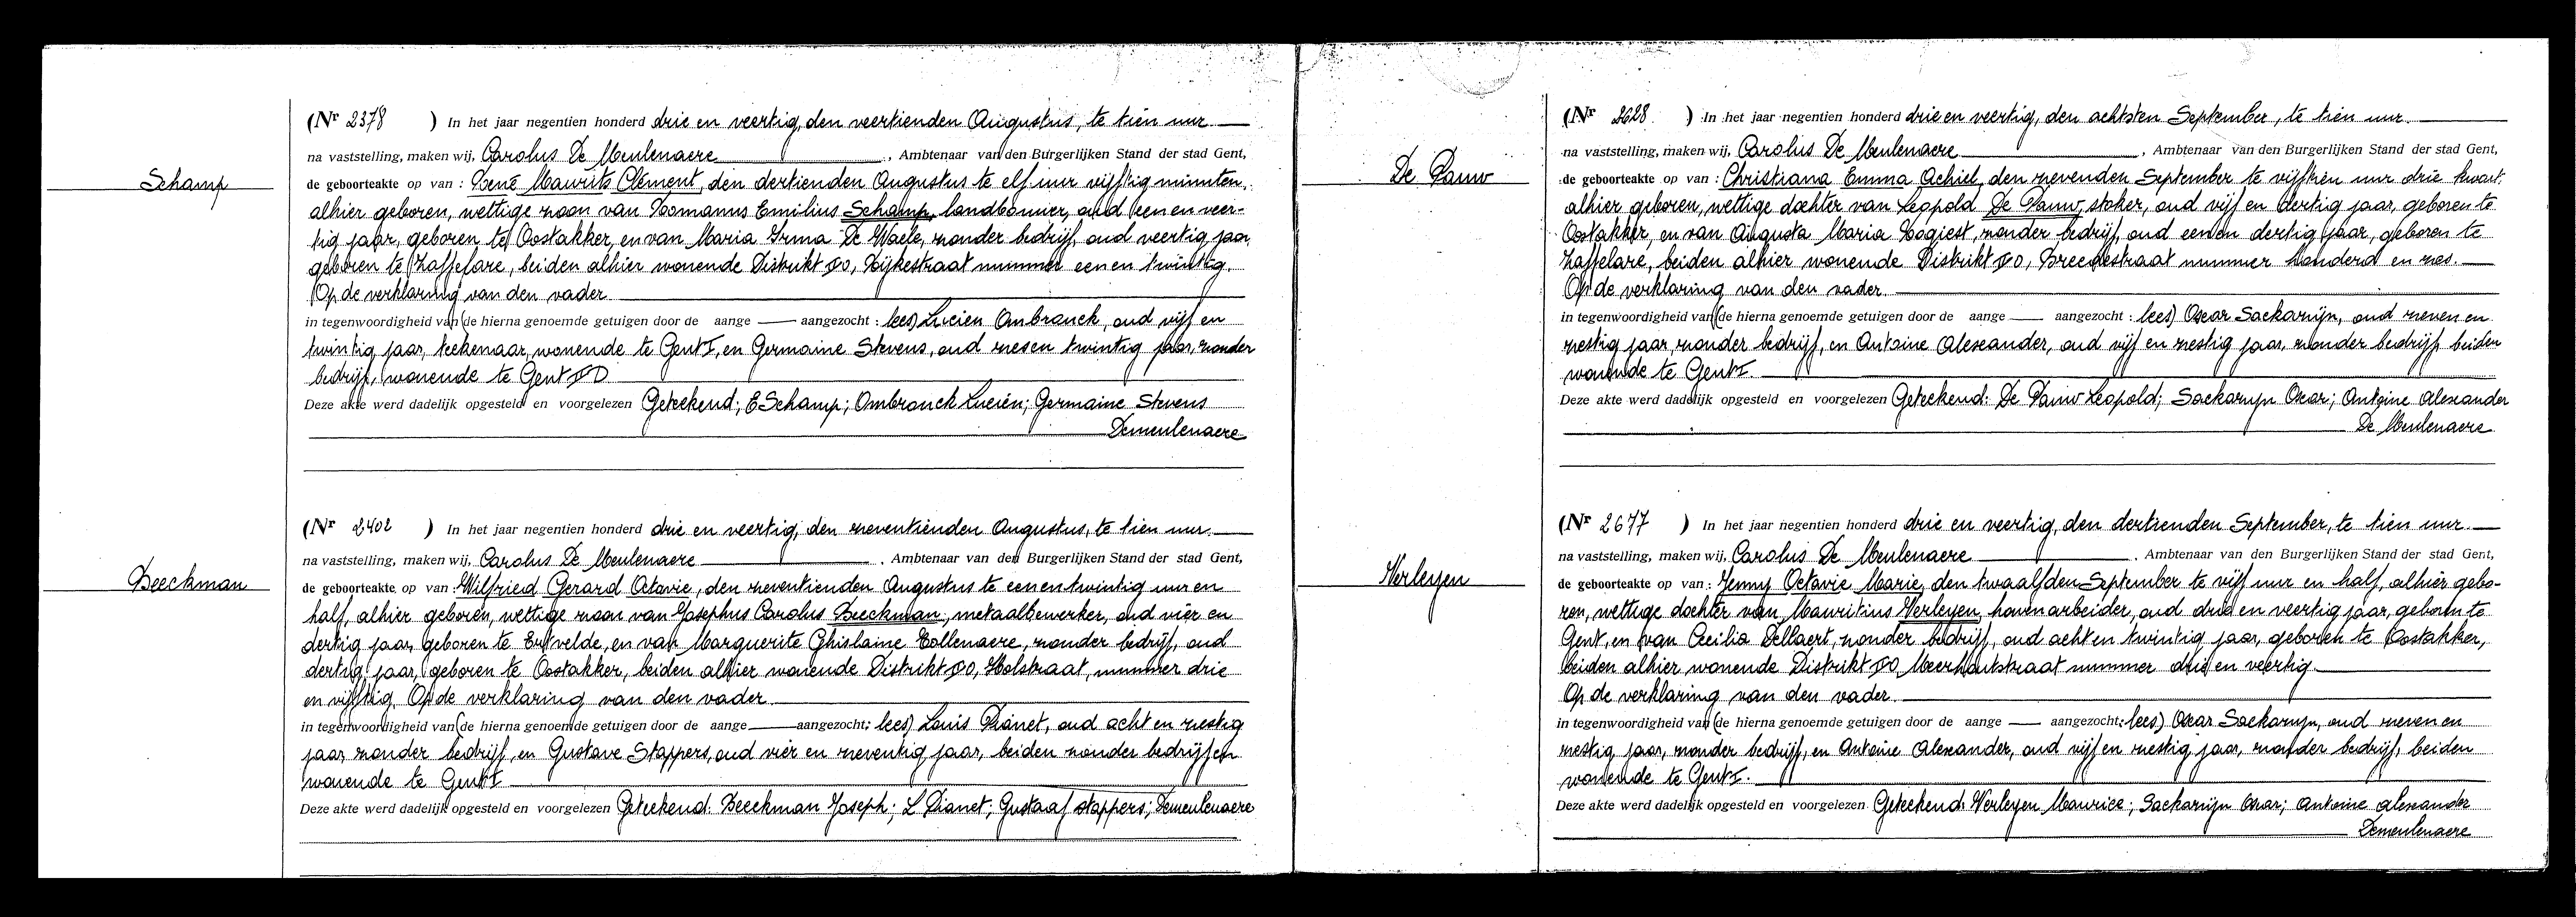 Schamp
(Nr 2378 ) In het jaar negentien honderd drie en veertig, den veertienden Augustus, te tien uur.
na vaststelling, maken wij, Carolus De Meulenaere, Ambtenaar van den Burgerlijken Stand der stad Gent,
de geboorteakte op van : René Maurits Clément, den dertienden Augustus te elf uur vijftig minuten,
alhier geboren, wettige zoon van Romanus Emilius Schamp, landbouwer, oud een en veer-
tig jaar, geboren te Oostakker, en van Maria Irma De Waele, zonder bedrijf, oud veertig jaar,
geboren te Zaffelare, beiden alhier wonende Distrikt O, Rijkestraat nummer een en twintig.
Op de verklaring van den vader.
in tegenwoordigheid van (de hierna genoemde getuigen door de aange aangezocht : lees) Lucien Ombranck, oud vijf en
twintig jaar, teekenaar, wonende te Gent I, en Germaine Stevens, oud zes en twintig jaar, zonder
bedrijf, wonende te Gent
Deze akte werd dadelijk opgesteld en voorgelezen Geteekend; E Schamp; Ombranck Lucien; Germaine Stevens
Demeulenaere
Beeckman
(Nr 2402 ) In het jaar negentien honderd drie en veertig, den zeventienden Augustus, te tien uur.
na vaststelling, maken wij, Carolus De Meulenaere. Ambtenaar van den Burgerlijken Stand der stad Gent,
de geboorteakte op van : Wilfried Gerard Octavie, den zeventienden Augustus te een en twintig uur en
half, alhier geboren, wettige zoon van Josephus Carolus Beeckman, metaalbewerker, oud vier en
dertig jaar, geboren te Ertvelde, en van Marguerite Ghislaine Collenaere, zonder bedrijf, oud
dertig jaar, geboren te Oostakker, beiden alhier wonende Distrikt O, Holstraat, nummer drie
en vijftig. Op de verklaring van den vader.
in tegenwoordigheid van (de hierna genoemde getuigen door de aange aangezocht; lees) Louis Pianet, oud acht en zestig
jaar, zonder bedrijf, en Gustave Stappers, oud vier en zeventig jaar, beiden zonder bedrijf en
wonende te Gent I
Deze akte werd dadelijk opgesteld en voorgelezen Geteekend: Beeckman Joseph; L Pianet; Gustaaf stappers; Demeulenaere
De Pauw
(Nr 2628. ) In het jaar negentien honderd drie en veertig, den achtsten September, te tien uur.
na vaststelling, maken wij, Carolus De Meulenaere, Ambtenaar van den Burgerlijken Stand der stad Gent,
de geboorteakte op van : Christiana Emma Achiel, den zevenden September te vijftien uur drie kwart,
alhier geboren, wettige dochter van Leopold De Pauw, stoker, oud vijf en dertig jaar, geboren te
Oostakker, en van Augusta Maria Rogiest, zonder bedrijf, oud een en dertig jaar, geboren te
Zaffelare, beiden alhier wonende Distrikt O, Breestraat nummer honderd en zes.
Op de verklaring van den vader.
in tegenwoordigheid van (de hierna genoemde getuigen door de aange aangezocht : lees) Oscar Sackarijn, oud zeven en
zestig jaar, zonder bedrijf, en Antoine Alexander, oud vijf en zestig jaar, zonder bedrijf, beiden
wonende te Gent I.
Deze akte werd dadelijk opgesteld en voorgelezen Geteekend: De Pauw Leopold; Sackarijn Oscar; Antoine Alexander
De Meulenaere
Verleyen
(Nr 2677 ) In het jaar negentien honderd drie en veertig, den dertienden September, te tien uur.
na vaststelling, maken wij, Carolus De Meulenaere. Ambtenaar van den Burgerlijken Stand der stad Gent,
de geboorteakte op van : Jenny Octavie Marie, den twaalfden September te vijf uur en half, alhier gebo-
ren, wettige dochter van Mauritius Verleyen, havenarbeider, oud drie en veertig jaar, geboren te
Gent, en van Cecilia Dellaert, zonder bedrijf, oud acht en twintig jaar, geboren te Oostakker,
beiden alhier wonende Distrikt O, Meerhoutstraat nummer drie en veertig.
Op de verklaring van den vader.
in tegenwoordigheid van (de hierna genoemde getuigen door de aange aangezocht; lees) Oscar Sackarijn, oud zeven en
zestig jaar, zonder bedrijf, en Antoine Alexander, oud vijf en zestig jaar, zonder bedrijf, beiden
wonende te Gent I.
Deze akte werd dadelijk opgesteld en voorgelezen Geteekend: Verleyen Maurice; Sackarijn Oscar; Antoine alexander
Demeulenaere